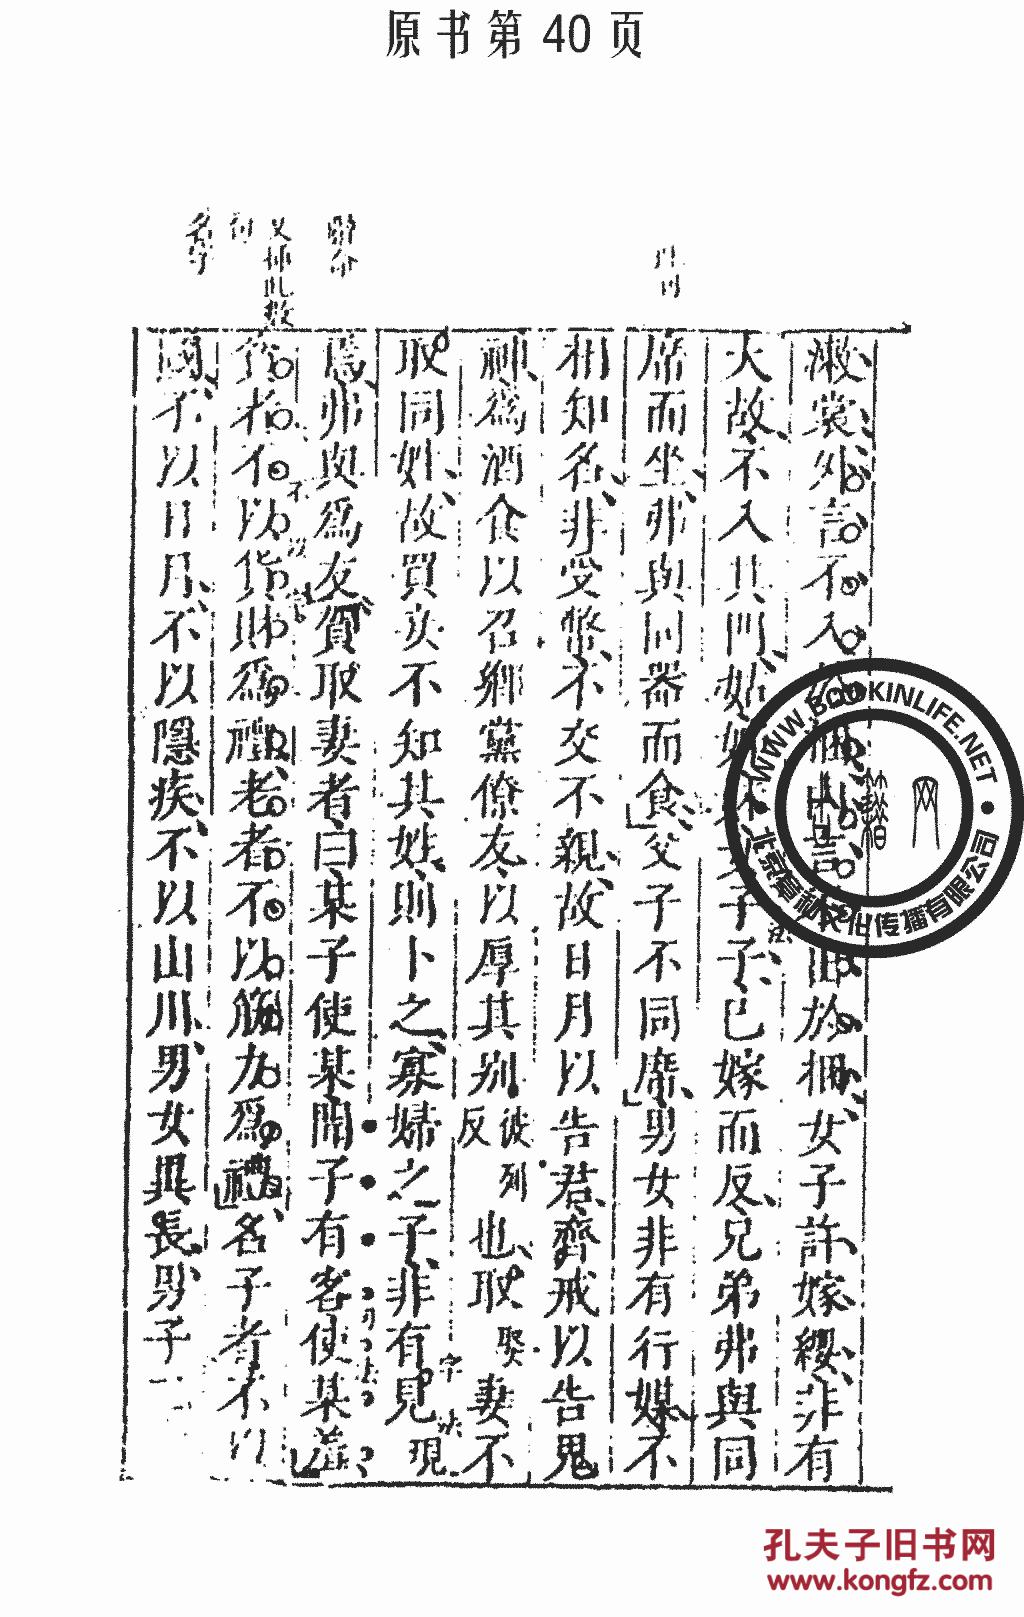 原书第40页
漱裳外言不入於梱內言不出於梱女子許嫁纓非有
大故不入其門姑姊妹女子子已嫁而反兄弟弗與同
席而坐弗與同器而食父子不同席男女非有行媒不
相知名非受幣不交不親故日月以告君齊戒以告鬼
神為酒食以召鄉黨僚友以厚其別 彼列反 也取 娶 妻不
取同姓故買妾不知其姓則卜之寡婦之子非有見 現
焉弗與爲友賀取妻者曰某子使某聞子有客使某羞
貧者不以貨財爲禮老者不以筋力爲禮名子者不以
國不以日月不以隱疾不以山川男女異長男子二
字法
WWW.BOOKINLIFE.NET
文化传播有限公司
孔夫子旧书网
www.kongfz.com